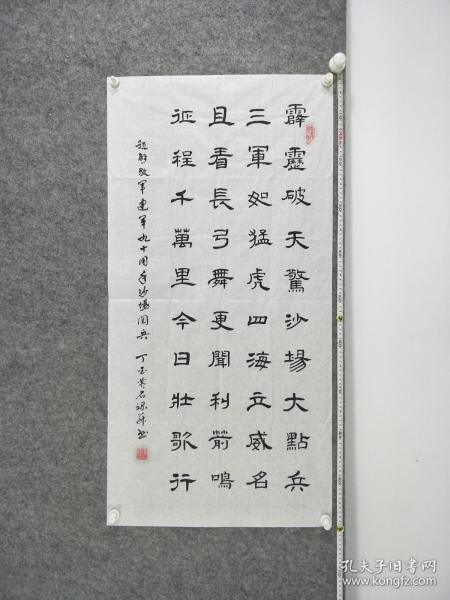 霹靂破天驚沙場大點兵
三軍如猛虎四海立威名
且看長弓舞更聞利箭鳴
征程千萬里今日壯歌行
題解放軍建軍九十周年沙場閱兵 丁酉黄石
孔夫子旧书网
www.kongfz.com